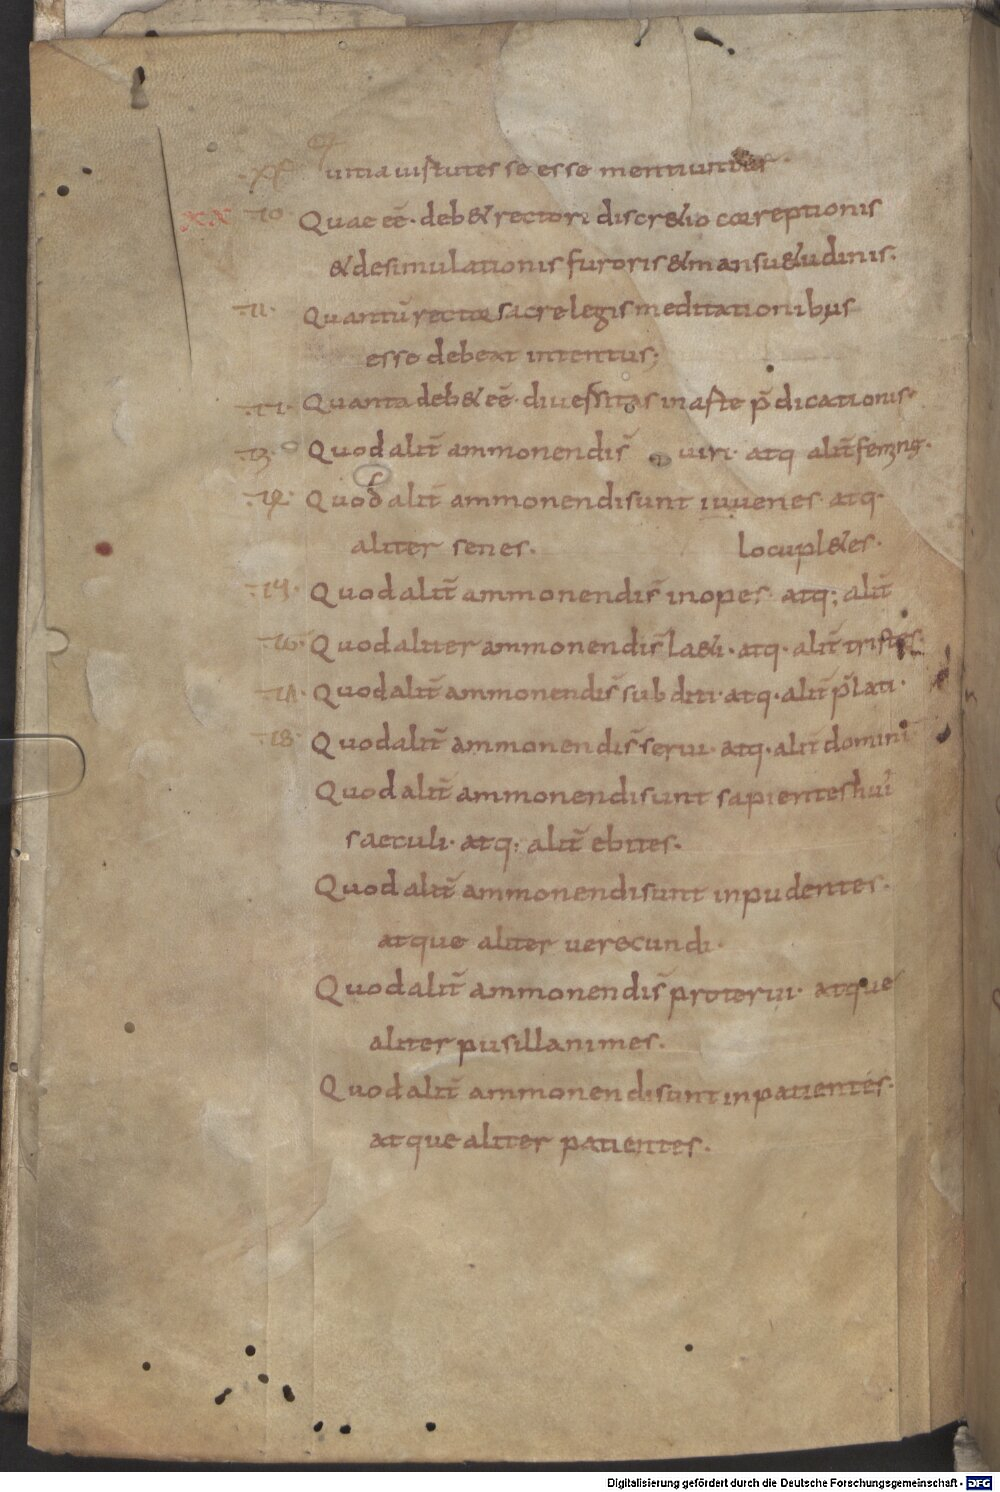 uitia uirtutes se esse mentiuntur
XX 10 Quae eē· deb& rectori discr&io correptionis
& desimulationis furoris & mansu&udinis.
11· Quantū rector sacre legis meditationibus
esse debeat intentus;
Quanta deb& eē· diuersitas in arte p̄dicationis·
13· Quod alit̄ ammonendis̄ uiri· atq alit̄ femine·
Quod alit̄ ammonendi sunt iuuenes· atq·
aliter senes· locupl&es·
Quod alit̄ ammonendis̄ inopes· atq; alit̄
16· Quod aliter ammonendis̄ la&i· atq· alit̄ tristes
Quod alit̄ ammonendis̄ subditi· atq· alit̄ p̄lati·
18· Quod alit̄ ammonendis̄ serui· atq· alit̄ domini
Quod alit̄ ammonendi sunt sapientes hui'
saeculi· atq; alit̄ ebites·
Quod alit̄ ammonendi sunt inpudentes·
atque aliter uerecundi·
Quod alit̄ ammonendis̄ proterui· atque
aliter pusillanimes·
Quod alit̄ ammonendi sunt inpatientes·
atque aliter patientes·
Digitalisierung gefördert durch die Deutsche Forschungsgemeinschaft - DFG